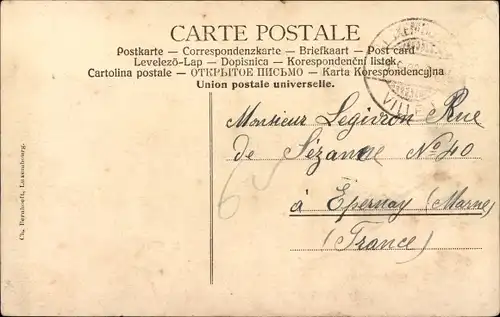 CARTE POSTALE
Postkarte — Correspondenzkarte — Briefkaart — Post card
Levelező-Lap — Dopisnica — Korespondenční lístek
Cartolina postale — ОТКРЫТОЕ ПИСЬМО — Karta Korespondencyjna
Union postale universelle.
VILLE
Monsieur Legivron Rue
de Sézanne No 40
à Epernay (Marne)
(France)
6
Ch. Bernhoeft, Luxembourg.